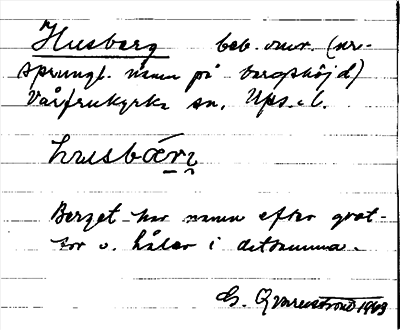 Husberg beb. omr. (ur-
sprungl. namn på bergshöjd)
Vårfrukyrka sn. Ups. l.
husbær
Berget har namn efter grot-
tor o. hålor i detsamma.
G. Qvarnström 1943